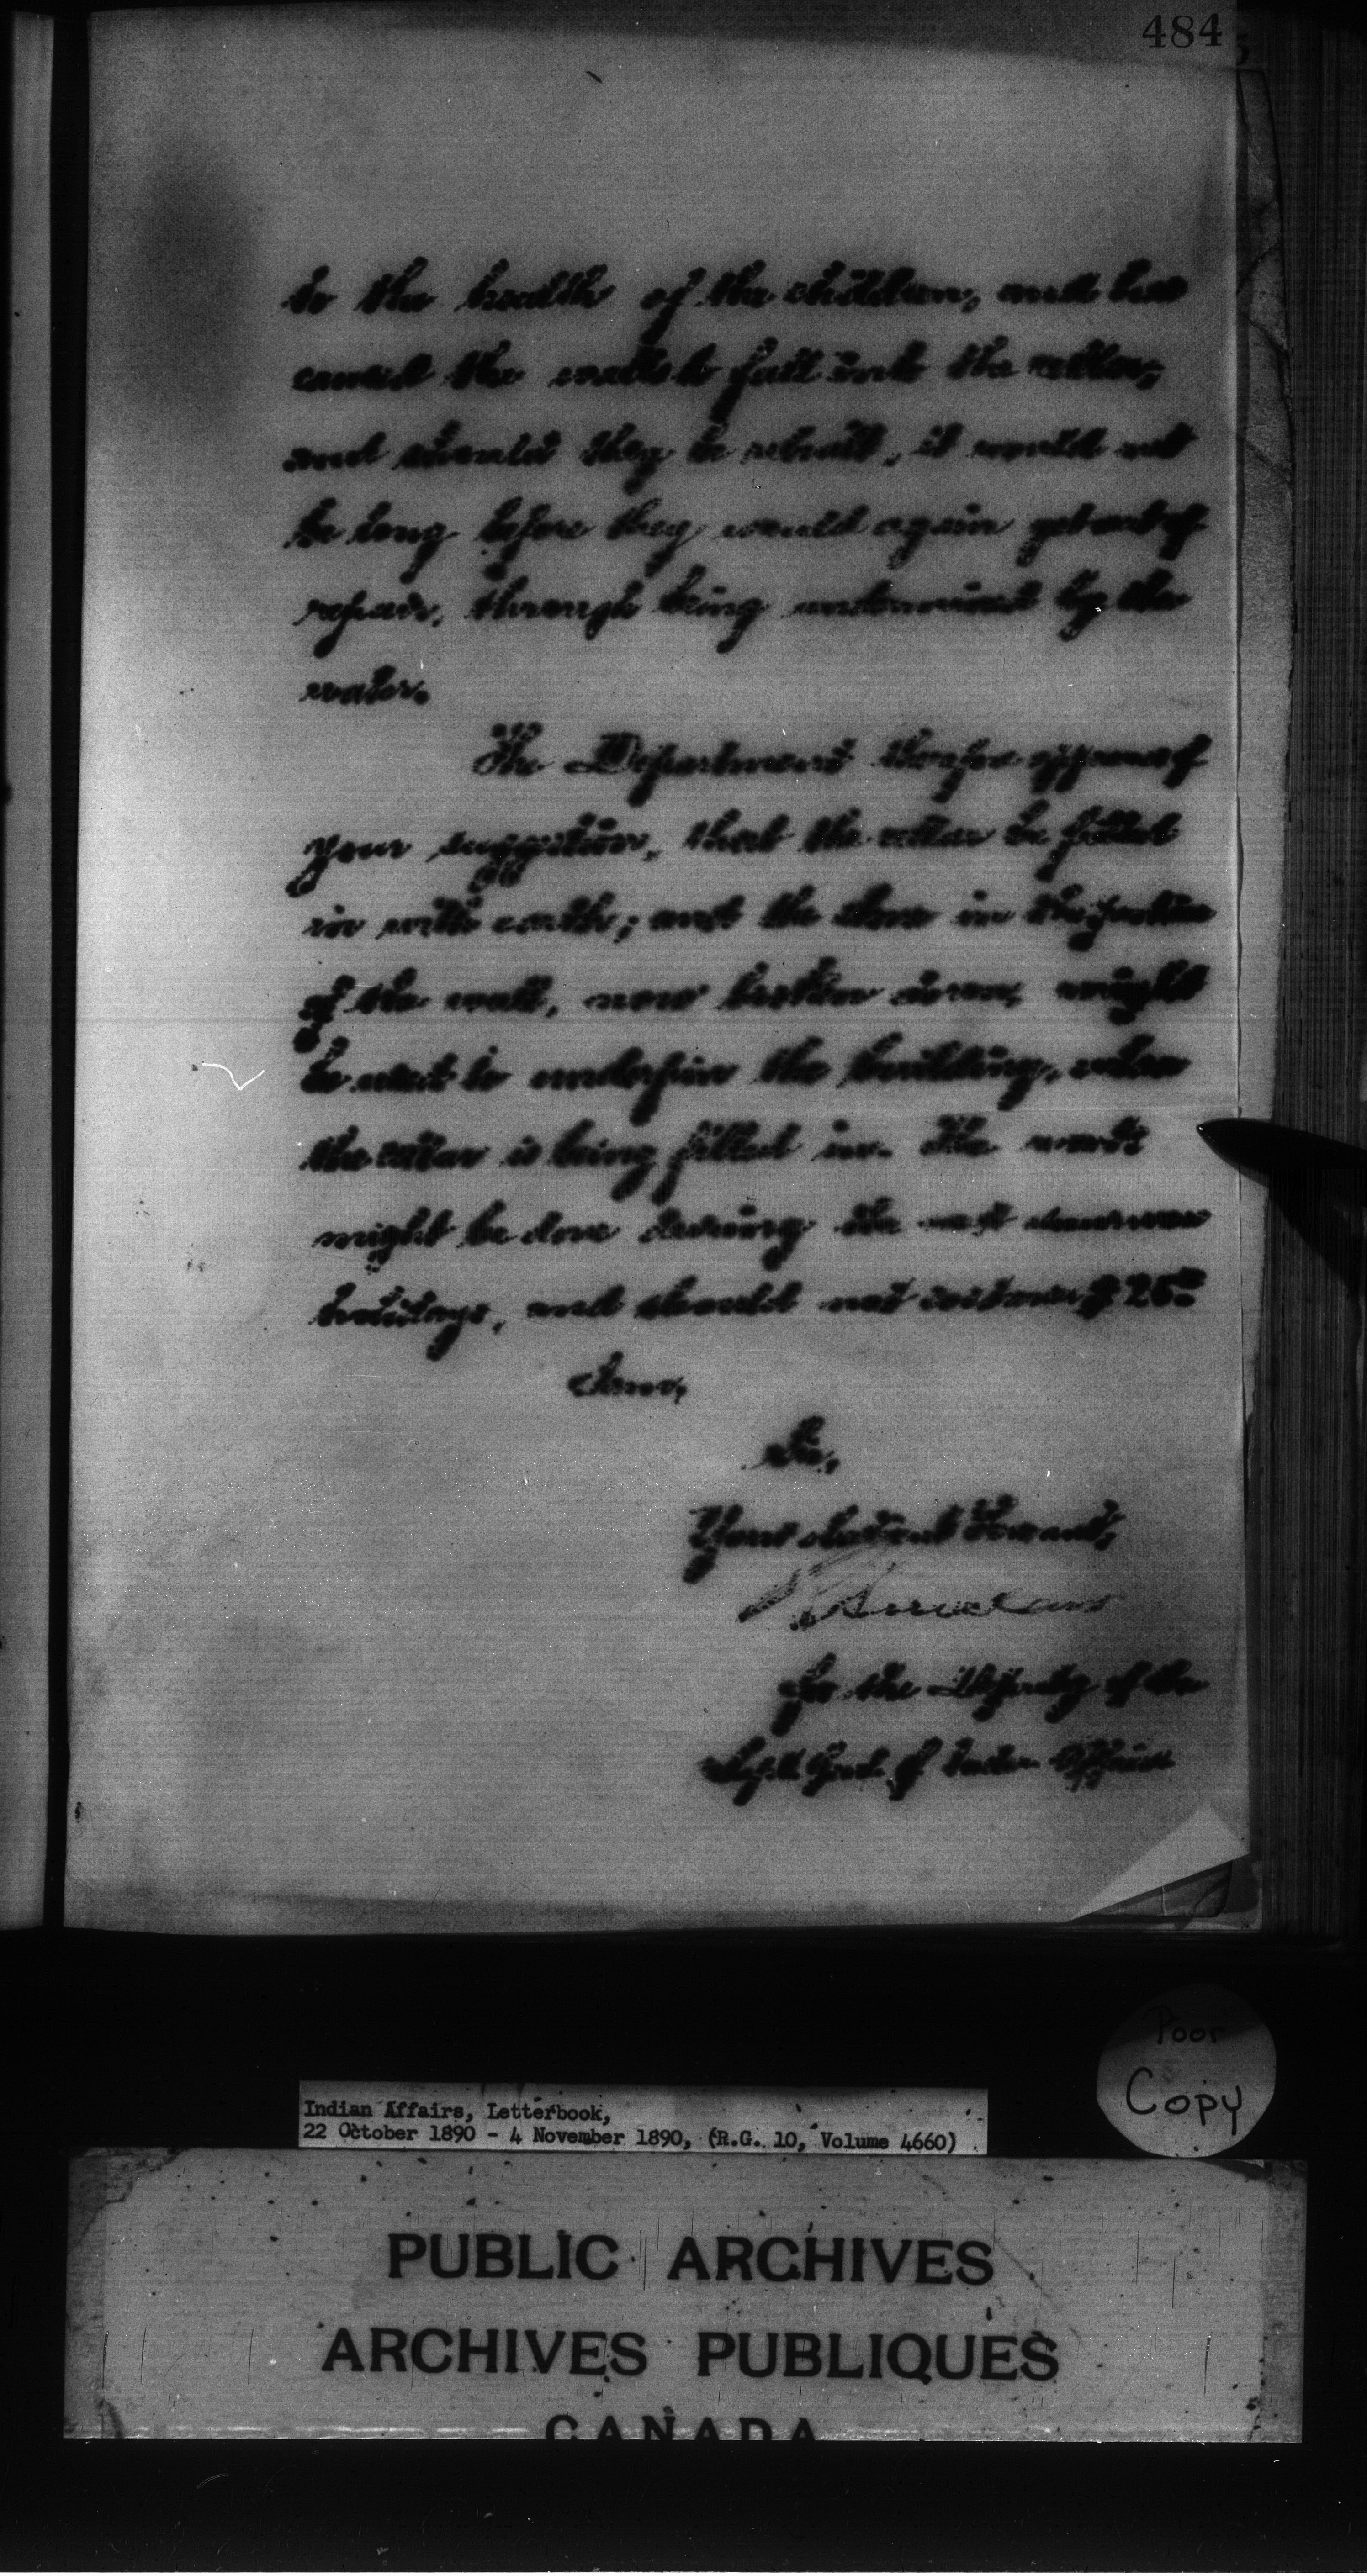 484
to the health of the children, and has
caused the walls to fall into the cellar;
and should they be rebuilt, it would not
be long before they would again get out of
repair, through being undermined by the
water.
The Department therefore approves of
your suggestion, that the cellar be filled
in with earth; and the stone in the portion
of the wall, now broken down, might
be used to underpin the building, when
the cellar is being filled in. The work
might be done during the next summer
holidays, and should not cost over $25.00
I am,
Sir,
Your obedient Servant,
For the Deputy of the
Supt. Genl. of Indian Affairs
Poor
Copy
Indian Affairs, Letterbook,
22 October 1890 - 4 November 1890, (R.G. 10, Volume 4660)
PUBLIC ARCHIVES
ARCHIVES PUBLIQUES
CANADA